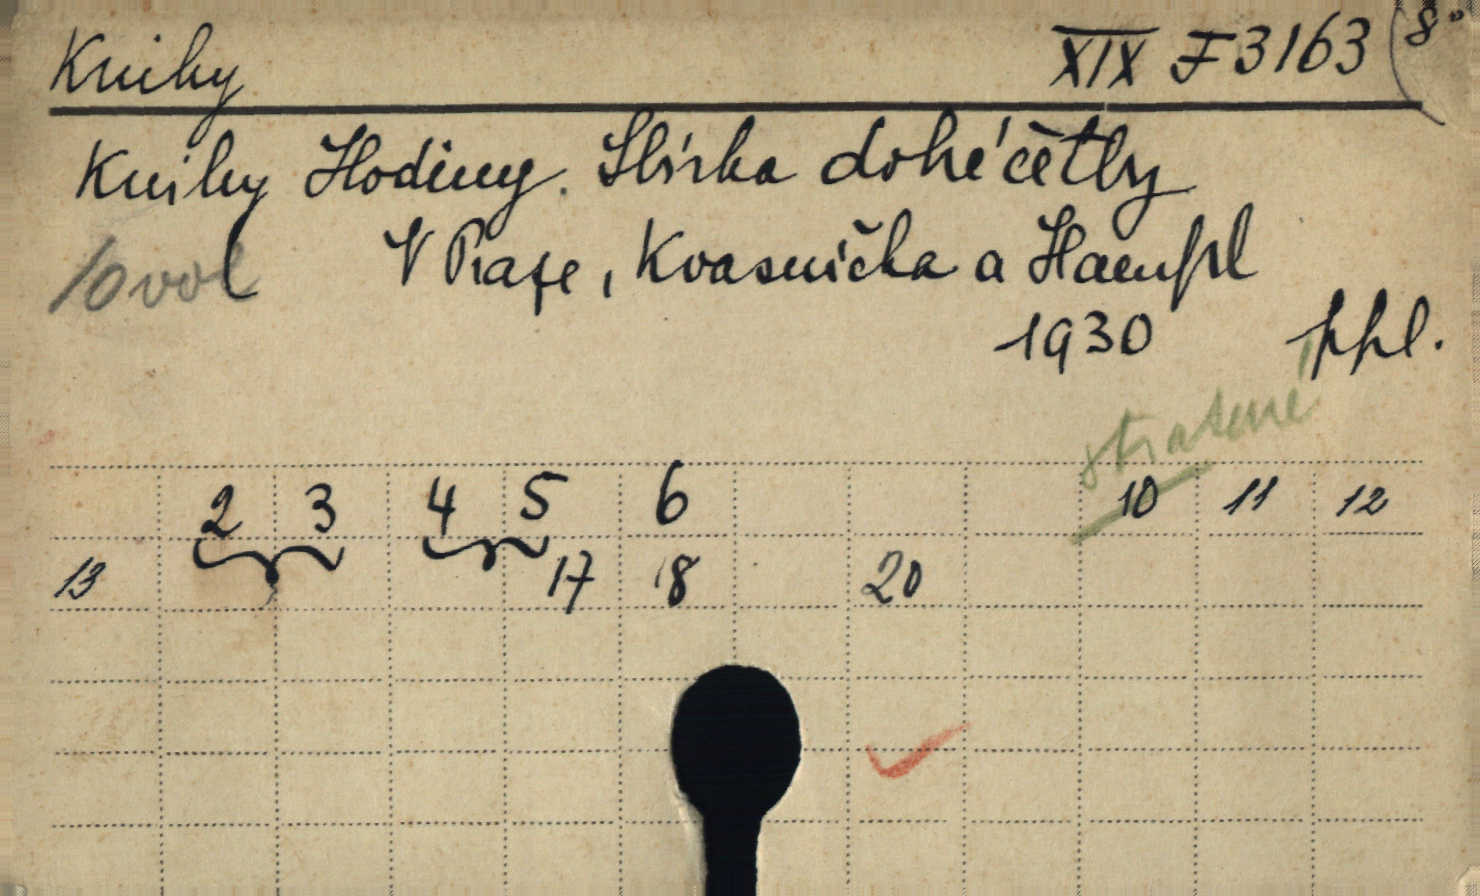 Knihy XIX F 3163 (8°
Knihy Hodiny. Sbírka dobré četby
10 vol V Praze, Kvasnička a Hampl
1930 ppl.
ztracené
2 3 4 5 6 10 11 12
13 17 18 20